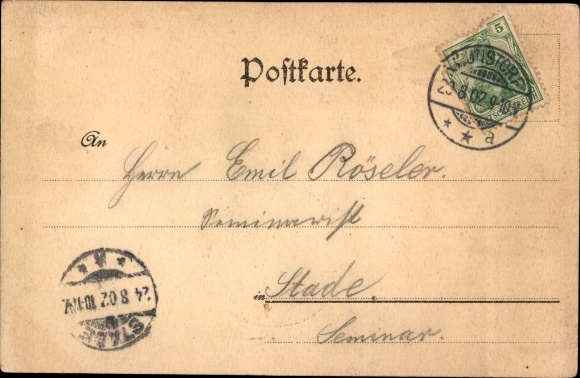 Postkarte.
5
23.8.02.9-10V
a
An
Herrn Emil Röseler.
Seminarist
in Stade.
Seminar.
24.8.02.10-11V.
STADE